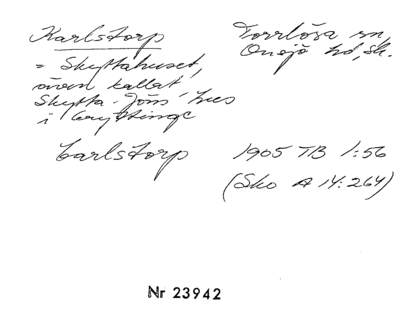 Karlstorp
Torrlösa sn,
Onsjö hd, Sk.
= Skyttahuset,
även kallat
Skytta-Jöns hus
i Gryttinge
Carlstorp 1905 TB 1:56
(Sko A 14:264)
Nr 23942